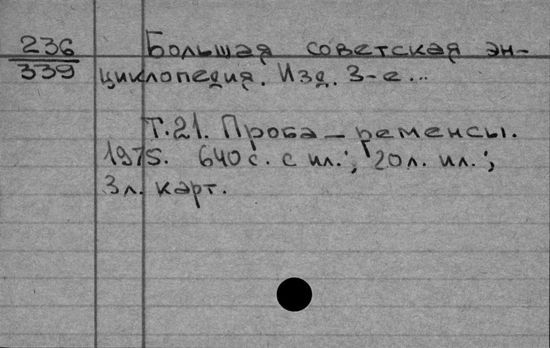 236
339
Большая советская эн-
циклопедия. Изд. 3-е...
Т.21. Проба - ременсы.
1975. 640 с. с ил.; 20 л. ил.;
3 л. карт.